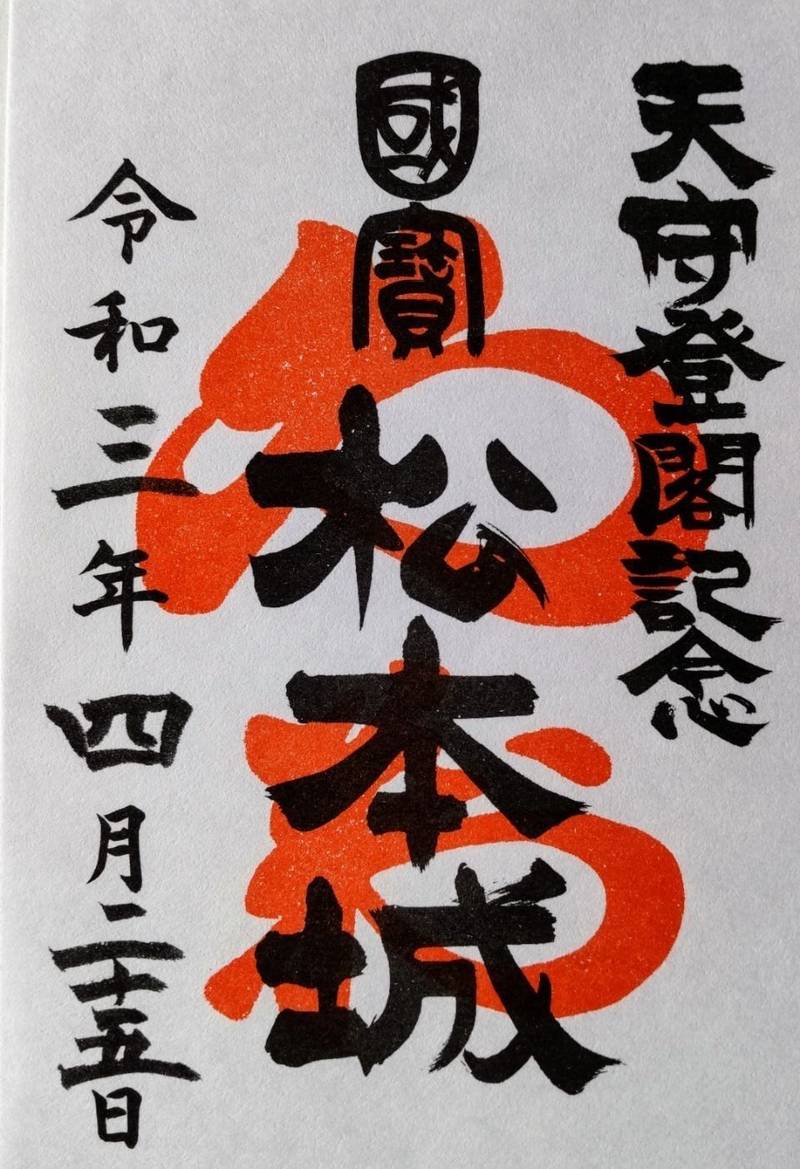 天守登閣記念
國寳 松本城
令和三年四月二十五日